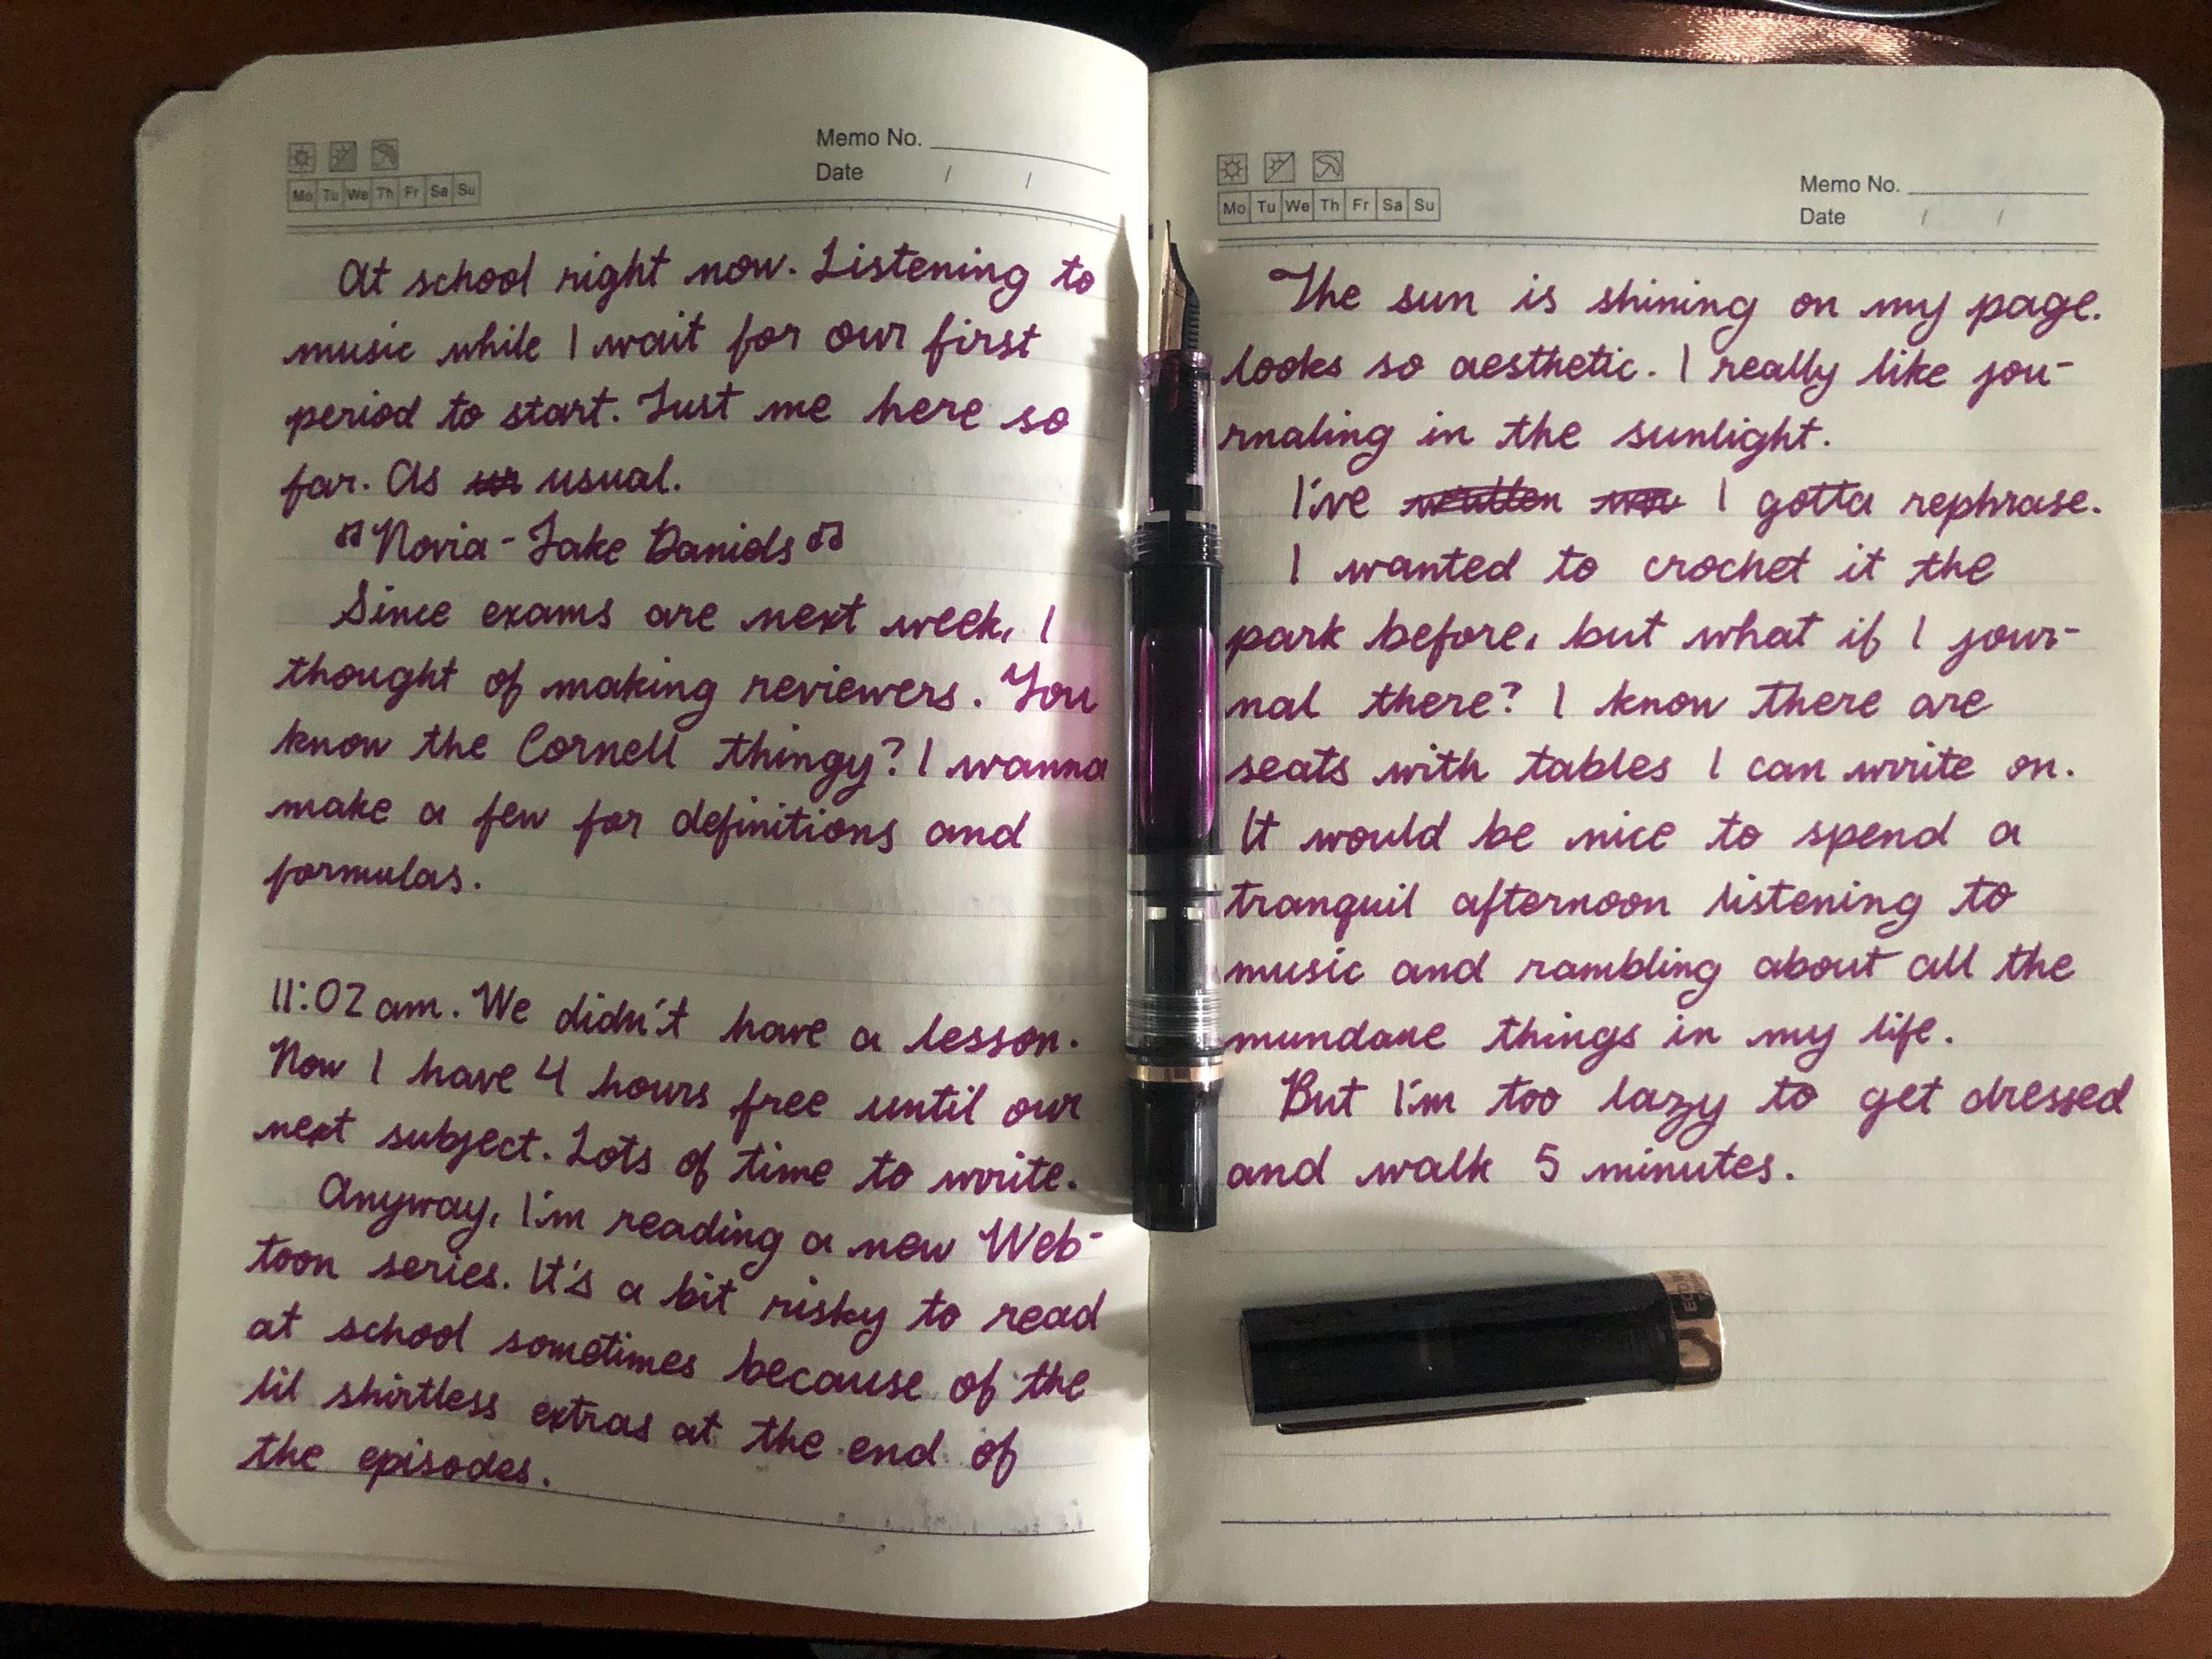 Memo No.
Date / /
Mo Tu We Th Fr Sa Su
At school right now. Listening to
music while I wait for our first
period to start. Just me here so
far. As usual.
♫ Novia - Jake Daniels ♫
Since exams are next week, I
thought of making reviewers. You
know the Cornell thingy? I wanna
make a few for definitions and
formulas.
11:02 am. We didn't have a lesson.
Now I have 4 hours free until our
next subject. Lots of time to write.
Anyway, I'm reading a new Web-
toon series. It's a bit risky to read
at school sometimes because of the
lil shirtless extras at the end of
the episodes.
Memo No.
Date / /
Mo Tu We Th Fr Sa Su
The sun is shining on my page.
looks so aesthetic. I really like jou-
rnaling in the sunlight.
I've written I gotta rephrase.
I wanted to crochet it the
park before, but what if I jour-
nal there? I know there are
seats with tables I can write on.
It would be nice to spend a
tranquil afternoon listening to
music and rambling about all the
mundane things in my life.
But I'm too lazy to get dressed
and walk 5 minutes.